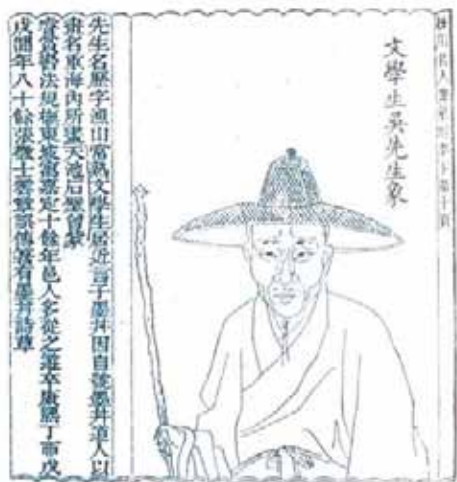 文學生吳先生象
先生名歷字漁山常熟文學生居近言子墨井因自號墨井道人以
畫名重海內所畫天池石壁
法規橅東坡寓嘉定十餘年邑人多從之遊卒康熙丁酉戊
戌間年八十餘張
著有墨井詩草